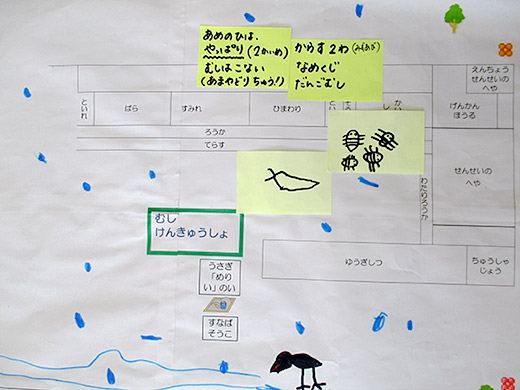 あめのひは、
やっぱり（2かいめ）
むしはこない
（あまやどりちゅう！）
からす2わ
なめくじ
だんごむし
えんちょう
せんせいの
へや
といれ
ばら
すみれ
ひまわり
げんかん
ほうる
ろうか
てらす
せんせいの
へや
わたりろうか
むし
けんきゅうしょ
うさぎ
「めり
い」のい
すなば
そうこ
ゆうぎしつ
ちゅうしゃ
じょう